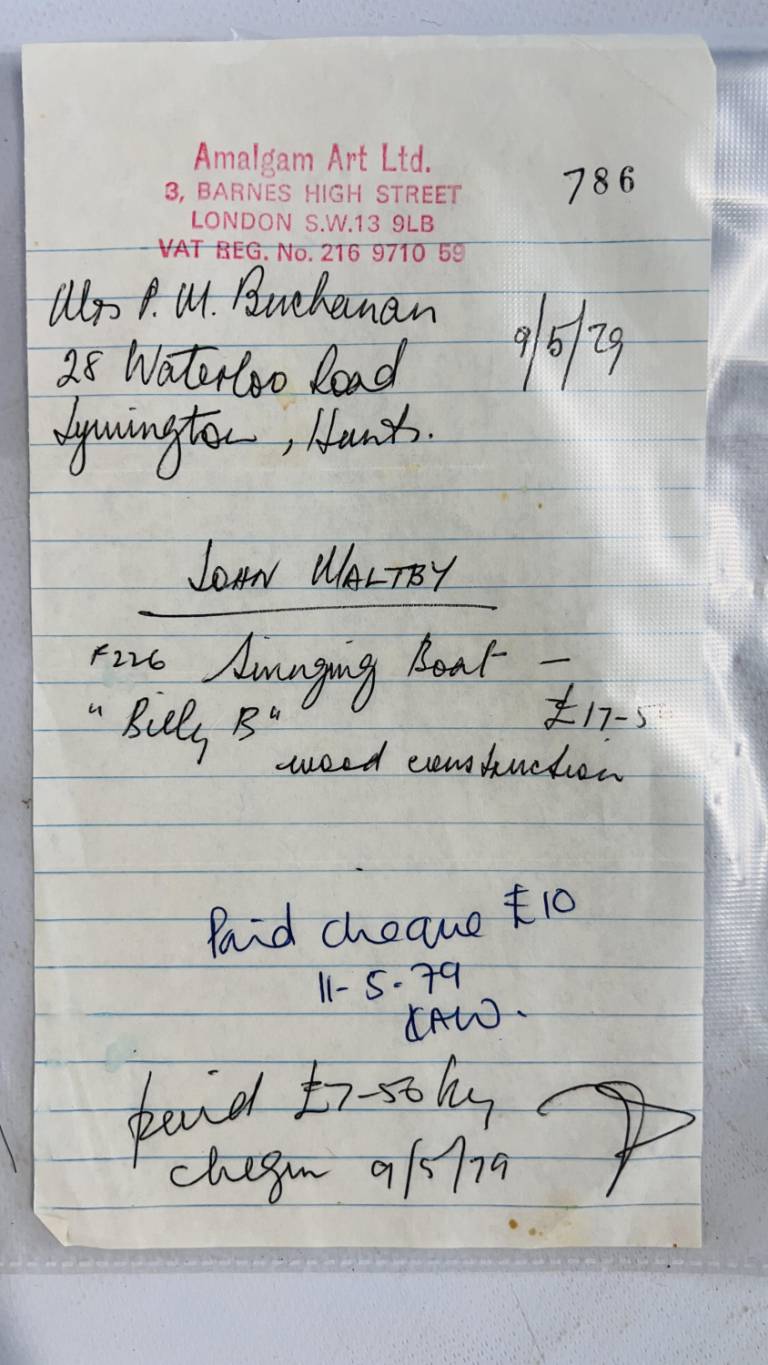 Amalgam Art Ltd.
786
3, BARNES HIGH STREET
LONDON S.W.13 9LB
VAT REG. No. 216 9710 59
Mrs P. M. Buchanan
9/5/79
28 Waterloo Road
Lymington, Hants.
JOHN MALTBY
F226 Swinging Boat —
"Billy B" £17-5
wood construction
Paid cheque £10
11-5-79
paid £7-50 by
cheque 9/5/79